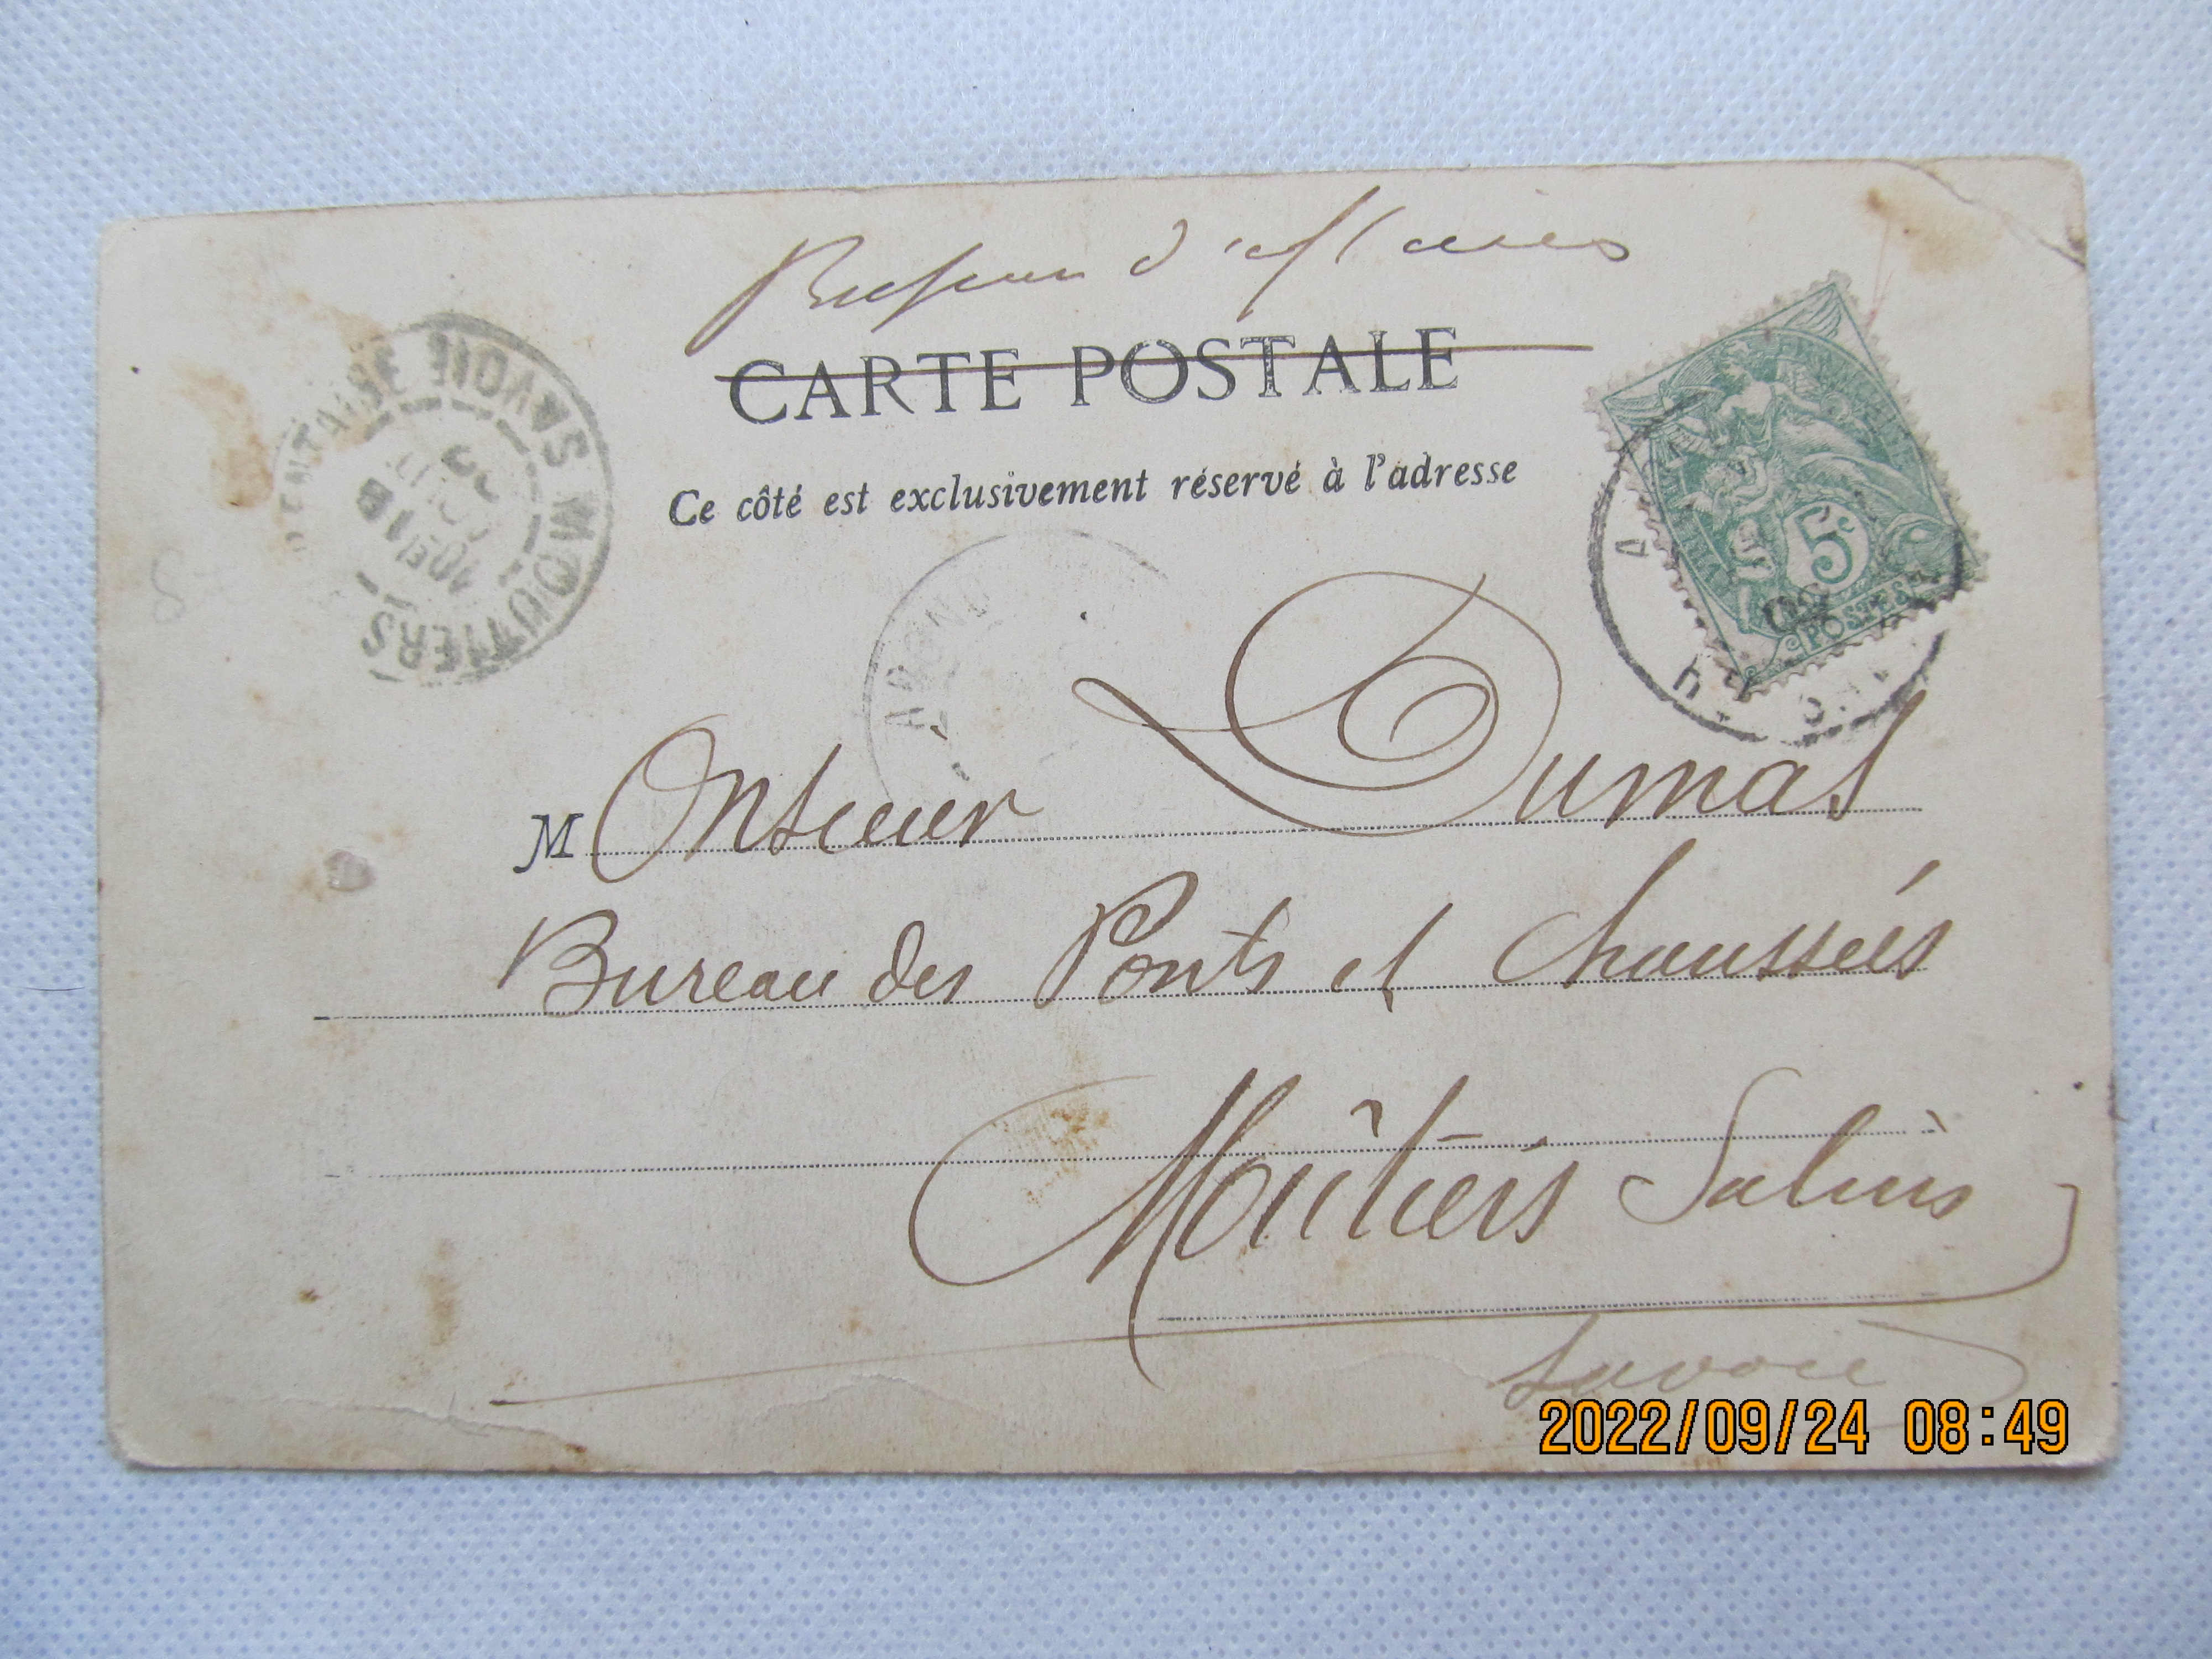 d'affaires
CARTE POSTALE
Ce côté est exclusivement réservé à l'adresse
5c
POSTES
MOUTIERS
SAVOIE
Monsieur Dumas
Bureau des Ponts et Chaussées
Moûtiers Salins
Savoie
2022/09/24 08:49